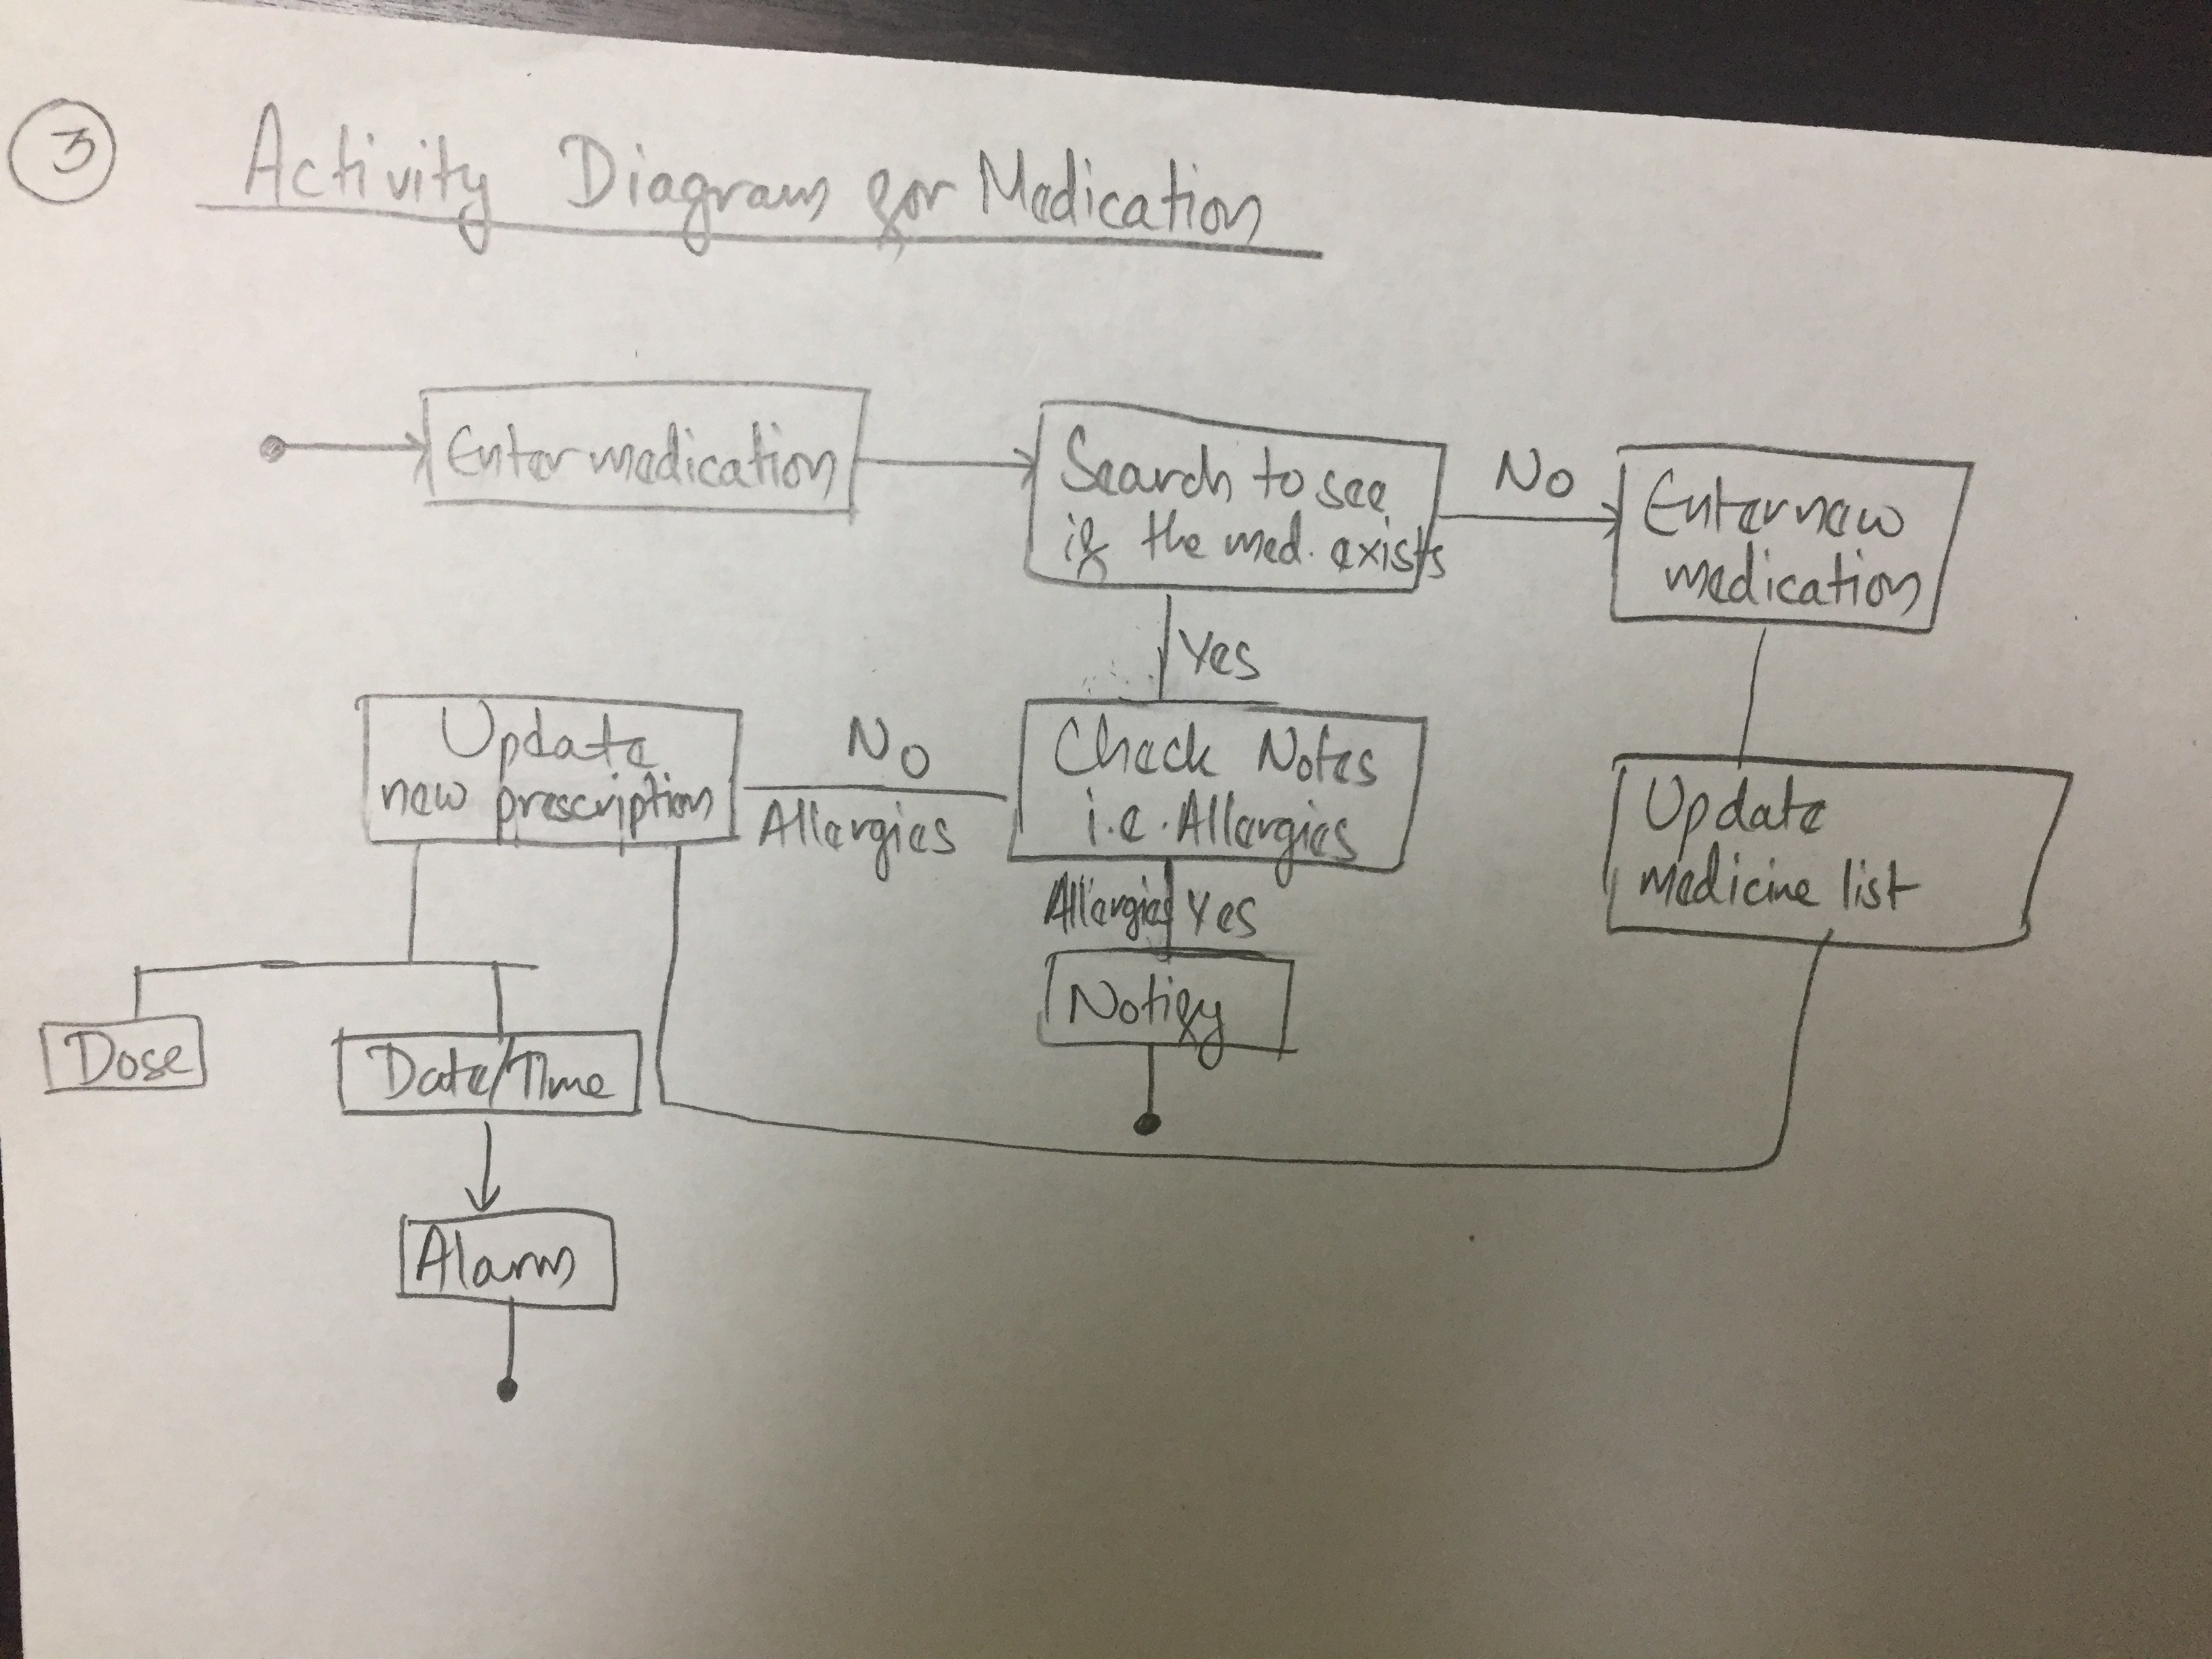 3
Activity Diagram for Medication
Enter medication
Search to see
if the med. exists
No
Enter new
medication
Yes
Update
new prescription
No
Allergies
Check Notes
i.e. Allergies
Update
medicine list
Allergies Yes
Notify
Dose
Date/Time
Alarm